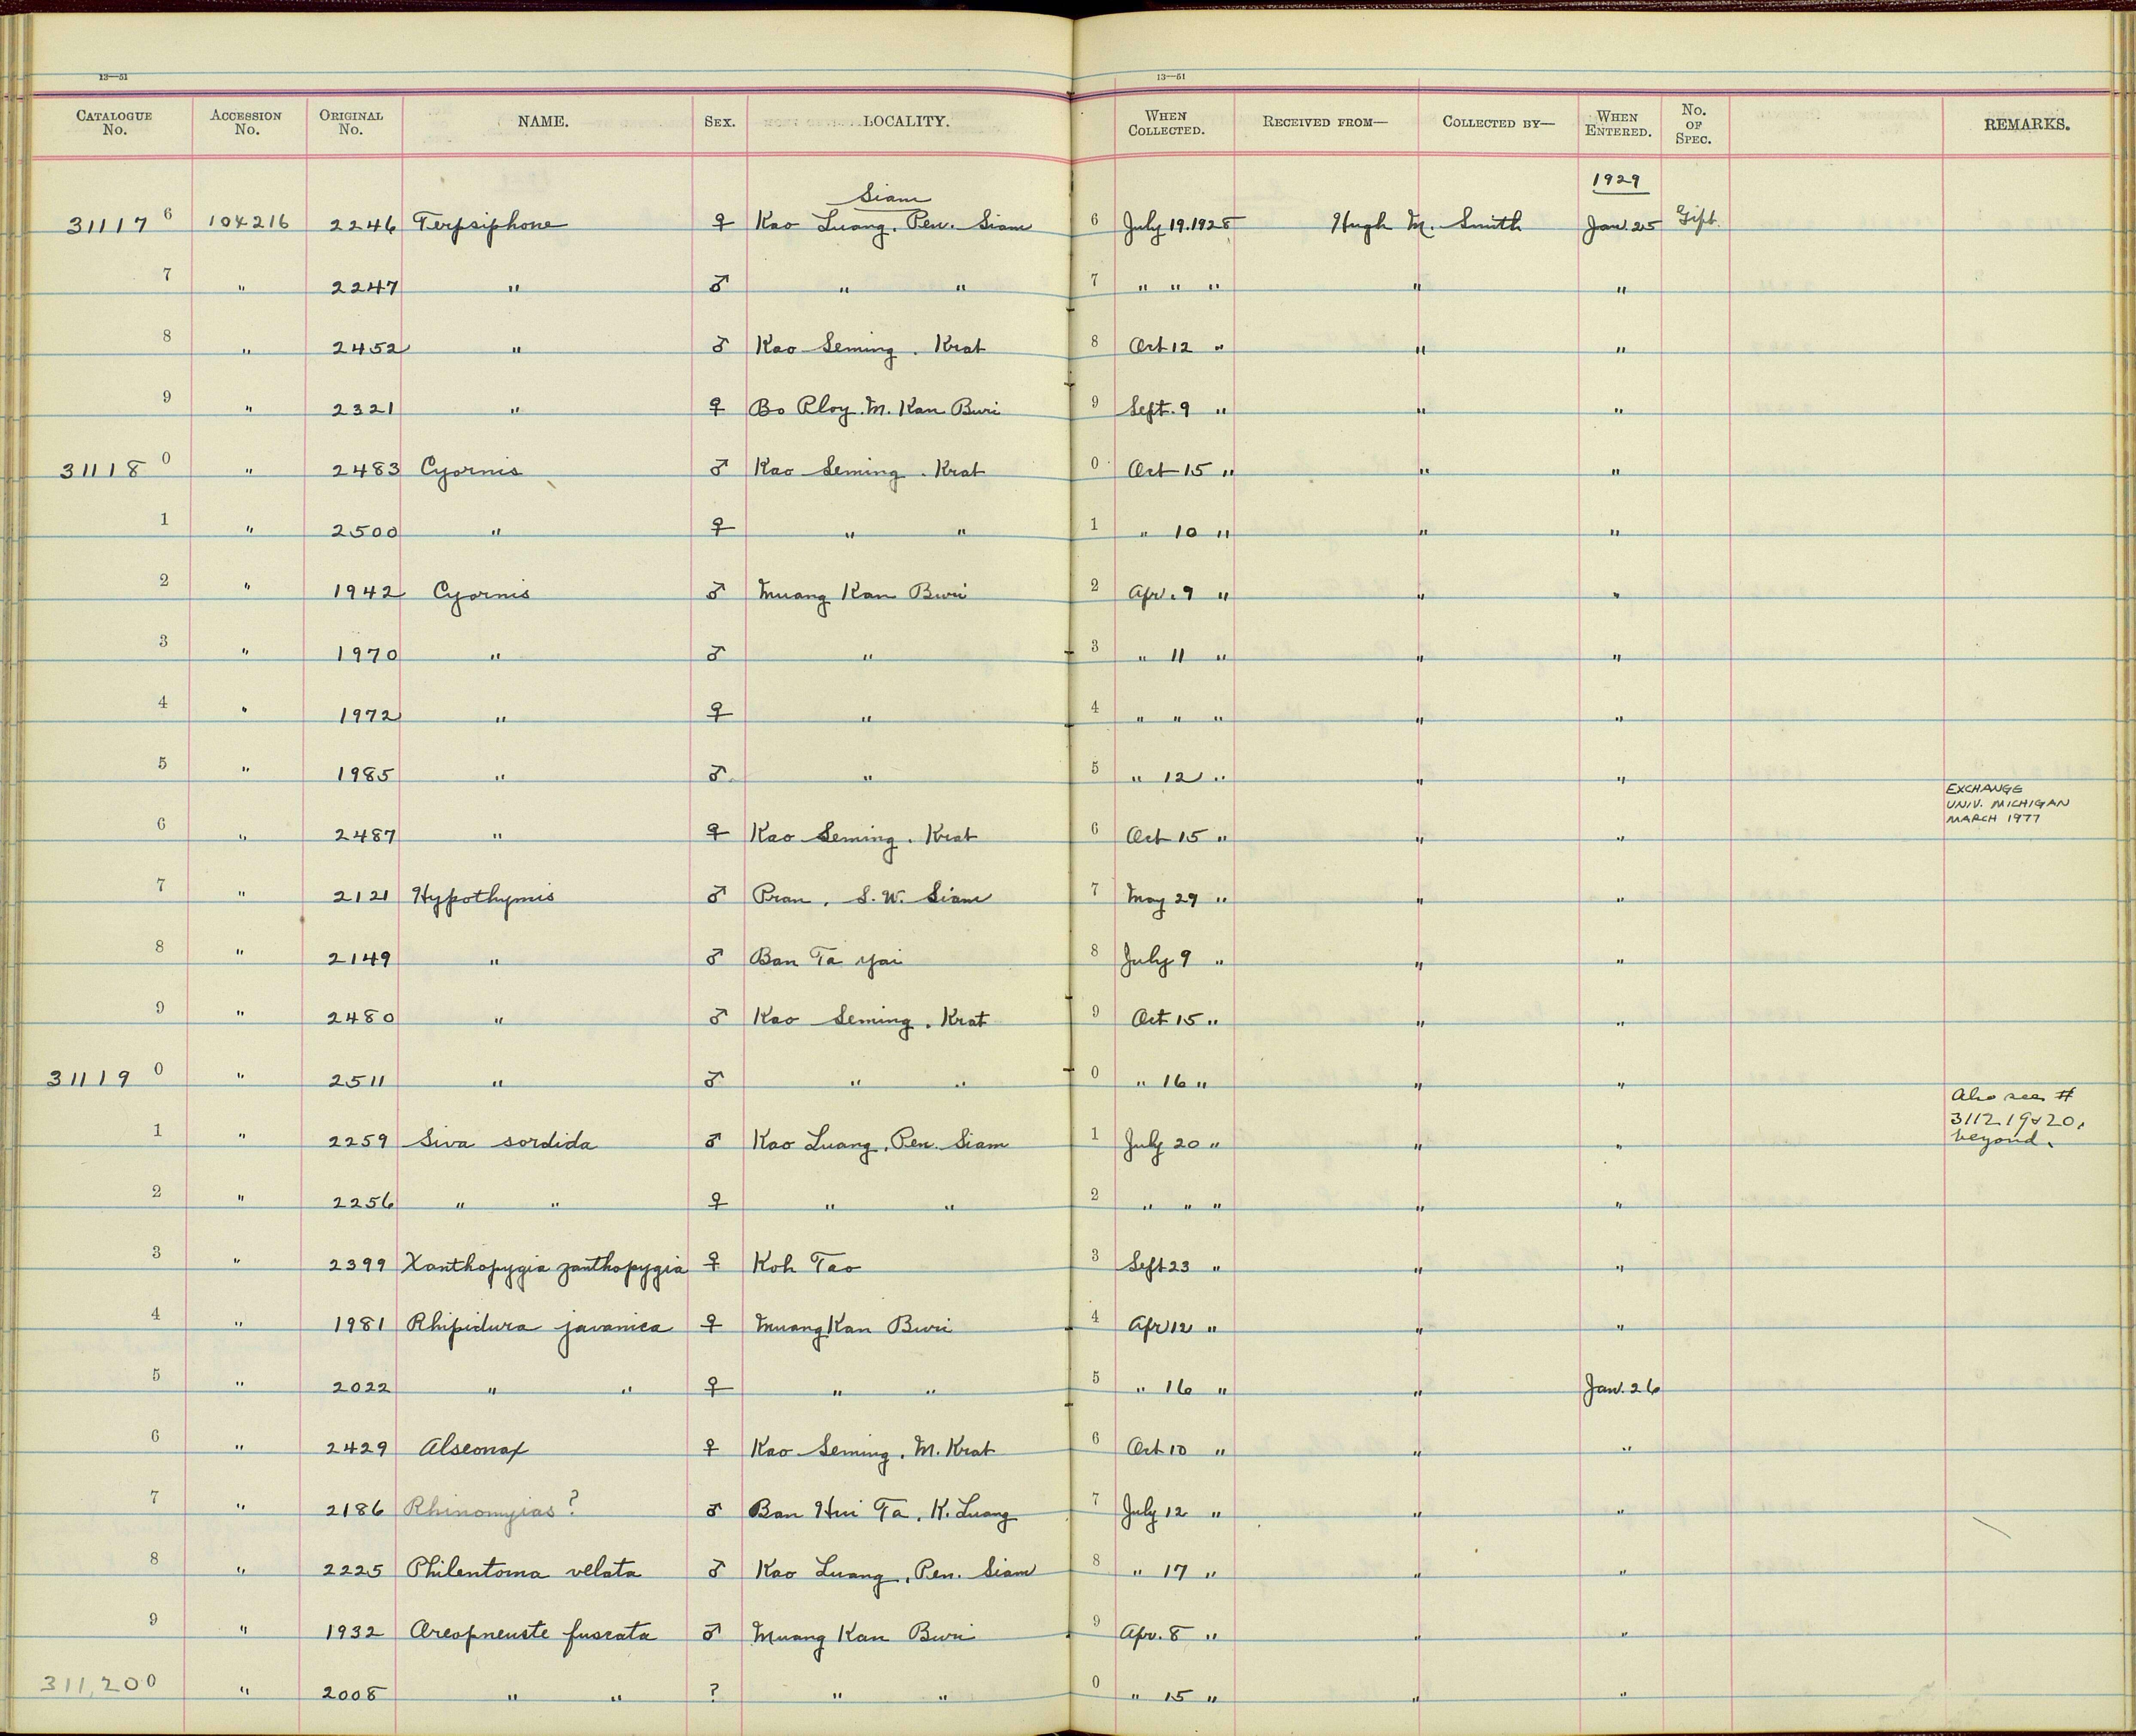 13—51 13—51
CATALOGUE No. ACCESSION No. ORIGINAL No. NAME. SEX. LOCALITY. WHEN COLLECTED. RECEIVED FROM— COLLECTED BY— WHEN ENTERED. No. OF SPEC. REMARKS.
Siam 1929
31117 6 104216 2246 Terpsiphone ♀ Kao Luang, Pen. Siam 6 July 19.1928 Hugh M. Smith Jan. 25 Gift
7 " 2247 " ♂ " " 7 " " " " "
8 " 2452 " ♂ Kao Seming. Krat 8 Oct 12 " " "
9 " 2321 " ♀ Bo Ploy. M. Kan Buri 9 Sept. 9 " " "
31118 0 " 2483 Cyornis ♂ Kao Seming. Krat 0 Oct 15 " " "
1 " 2500 " ♀ " " 1 " 10 " " "
2 " 1942 Cyornis ♂ Muang Kan Buri 2 Apr. 9 " " "
3 " 1970 " ♂ " 3 " 11 " " "
4 " 1972 " ♀ " 4 " " " " "
5 " 1985 " ♂ " 5 " 12 " " "
EXCHANGE
UNIV. MICHIGAN
MARCH 1977
6 " 2487 " ♀ Kao Seming. Krat 6 Oct 15 " " "
7 " 2121 Hypothymis ♂ Pran, S.W. Siam 7 May 29 " " "
8 " 2149 " ♂ Ban Ta Yai 8 July 9 " " "
9 " 2480 " ♂ Kao Seming. Krat 9 Oct 15 " " "
31119 0 " 2511 " ♂ " " 0 " 16 " " "
Also see #
311219 & 20,
beyond.
1 " 2259 Siva sordida ♂ Kao Luang, Pen. Siam 1 July 20 " " "
2 " 2256 " " ♀ " " 2 " " " " "
3 " 2399 Xanthopygia zanthopygia ♀ Koh Tao 3 Sept 23 " " "
4 " 1981 Rhipidura javanica ♀ Muang Kan Buri 4 Apr 12 " " "
5 " 2022 " " ♀ " " 5 " 16 " " Jan. 26
6 " 2429 Alseonax ♀ Kao Seming, M. Krat 6 Oct 10 " " "
7 " 2186 Rhinomyias? ♂ Ban Hui Ta, K. Luang 7 July 12 " " "
8 " 2225 Philentoma velata ♂ Kao Luang, Pen. Siam 8 " 17 " " "
9 " 1932 Oreopneuste fuscata ♂ Muang Kan Buri 9 Apr. 8 " " "
311,200 " 2008 " " ? " " 0 " 15 " " "